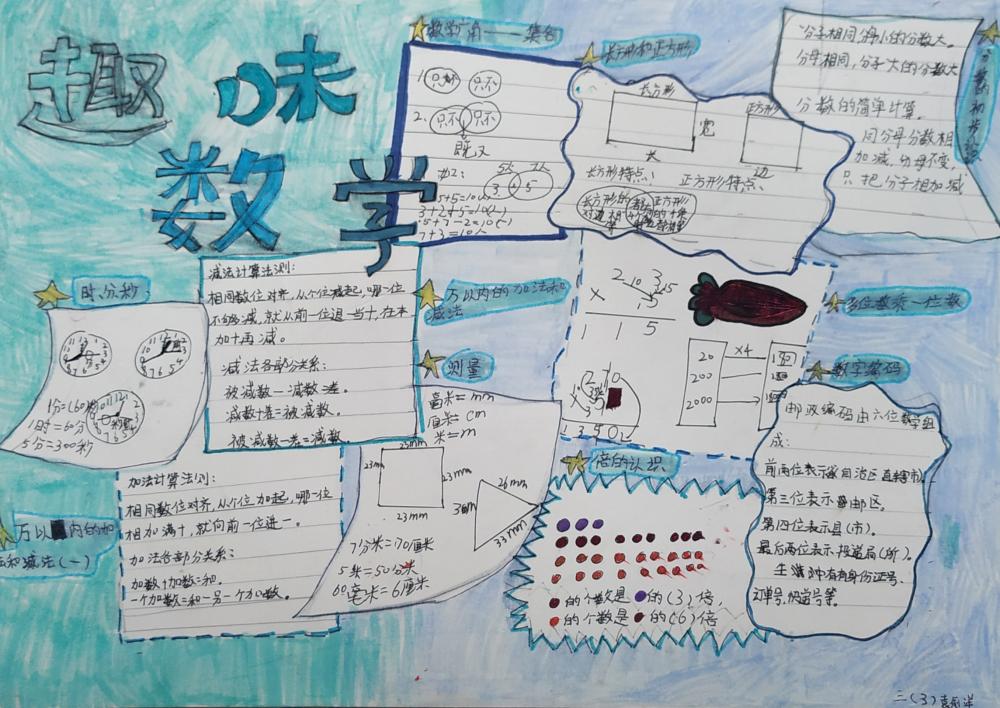 趣味
数学
时分秒
1分=60秒
1时=60分
5分=300秒
减法计算法则:
相同数位对齐,从个位减起,哪一位
不够减,就从前一位退一当十,在本
加十再减。
减法各部分关系:
被减数-减数=差。
减数+差=被减数。
被减数-差=减数。
万以内的加法和
减法
万以内的加
法和减法(一)
加法计算法则:
相同数位对齐,从个位加起,哪一位
相加满十,就向前一位进一。
加法各部分关系:
加数+加数=和。
一个加数=和-另一个加数。
测量
毫米=mm
厘米=cm
米=m
23mm
23mm
23mm
23mm
26mm
33mm
7分米=70厘米
5米=50分米
60毫米=6厘米
数学广角——集合
1.
只不
2.
只不 只不
既又
3 5
7+3=10(人)
长方形和正方形
长方形
宽
长
正方形
边
长方形特点:
正方形特点:
长方形的
对边相
等
正方形
分数的初步认识
分子相同,分母小的分数大。
分母相同,分子大的分数大
分数的简单计算。
同分母分数相
加减,分母不变,
只把分子相加减
多位数乘一位数
2 3
× 5
1 1 5
20
200
2000
×4
1350
数字编码
邮政编码由六位数字组
成:
前两位表示省自治区直辖市。
第三位表示邮区。
第四位表示县(市)。
最后两位表示投递局(所)。
生活中有身份证号、
倍的认识
的个数是 的(3)倍,
的个数是 的(6)倍
三(3)